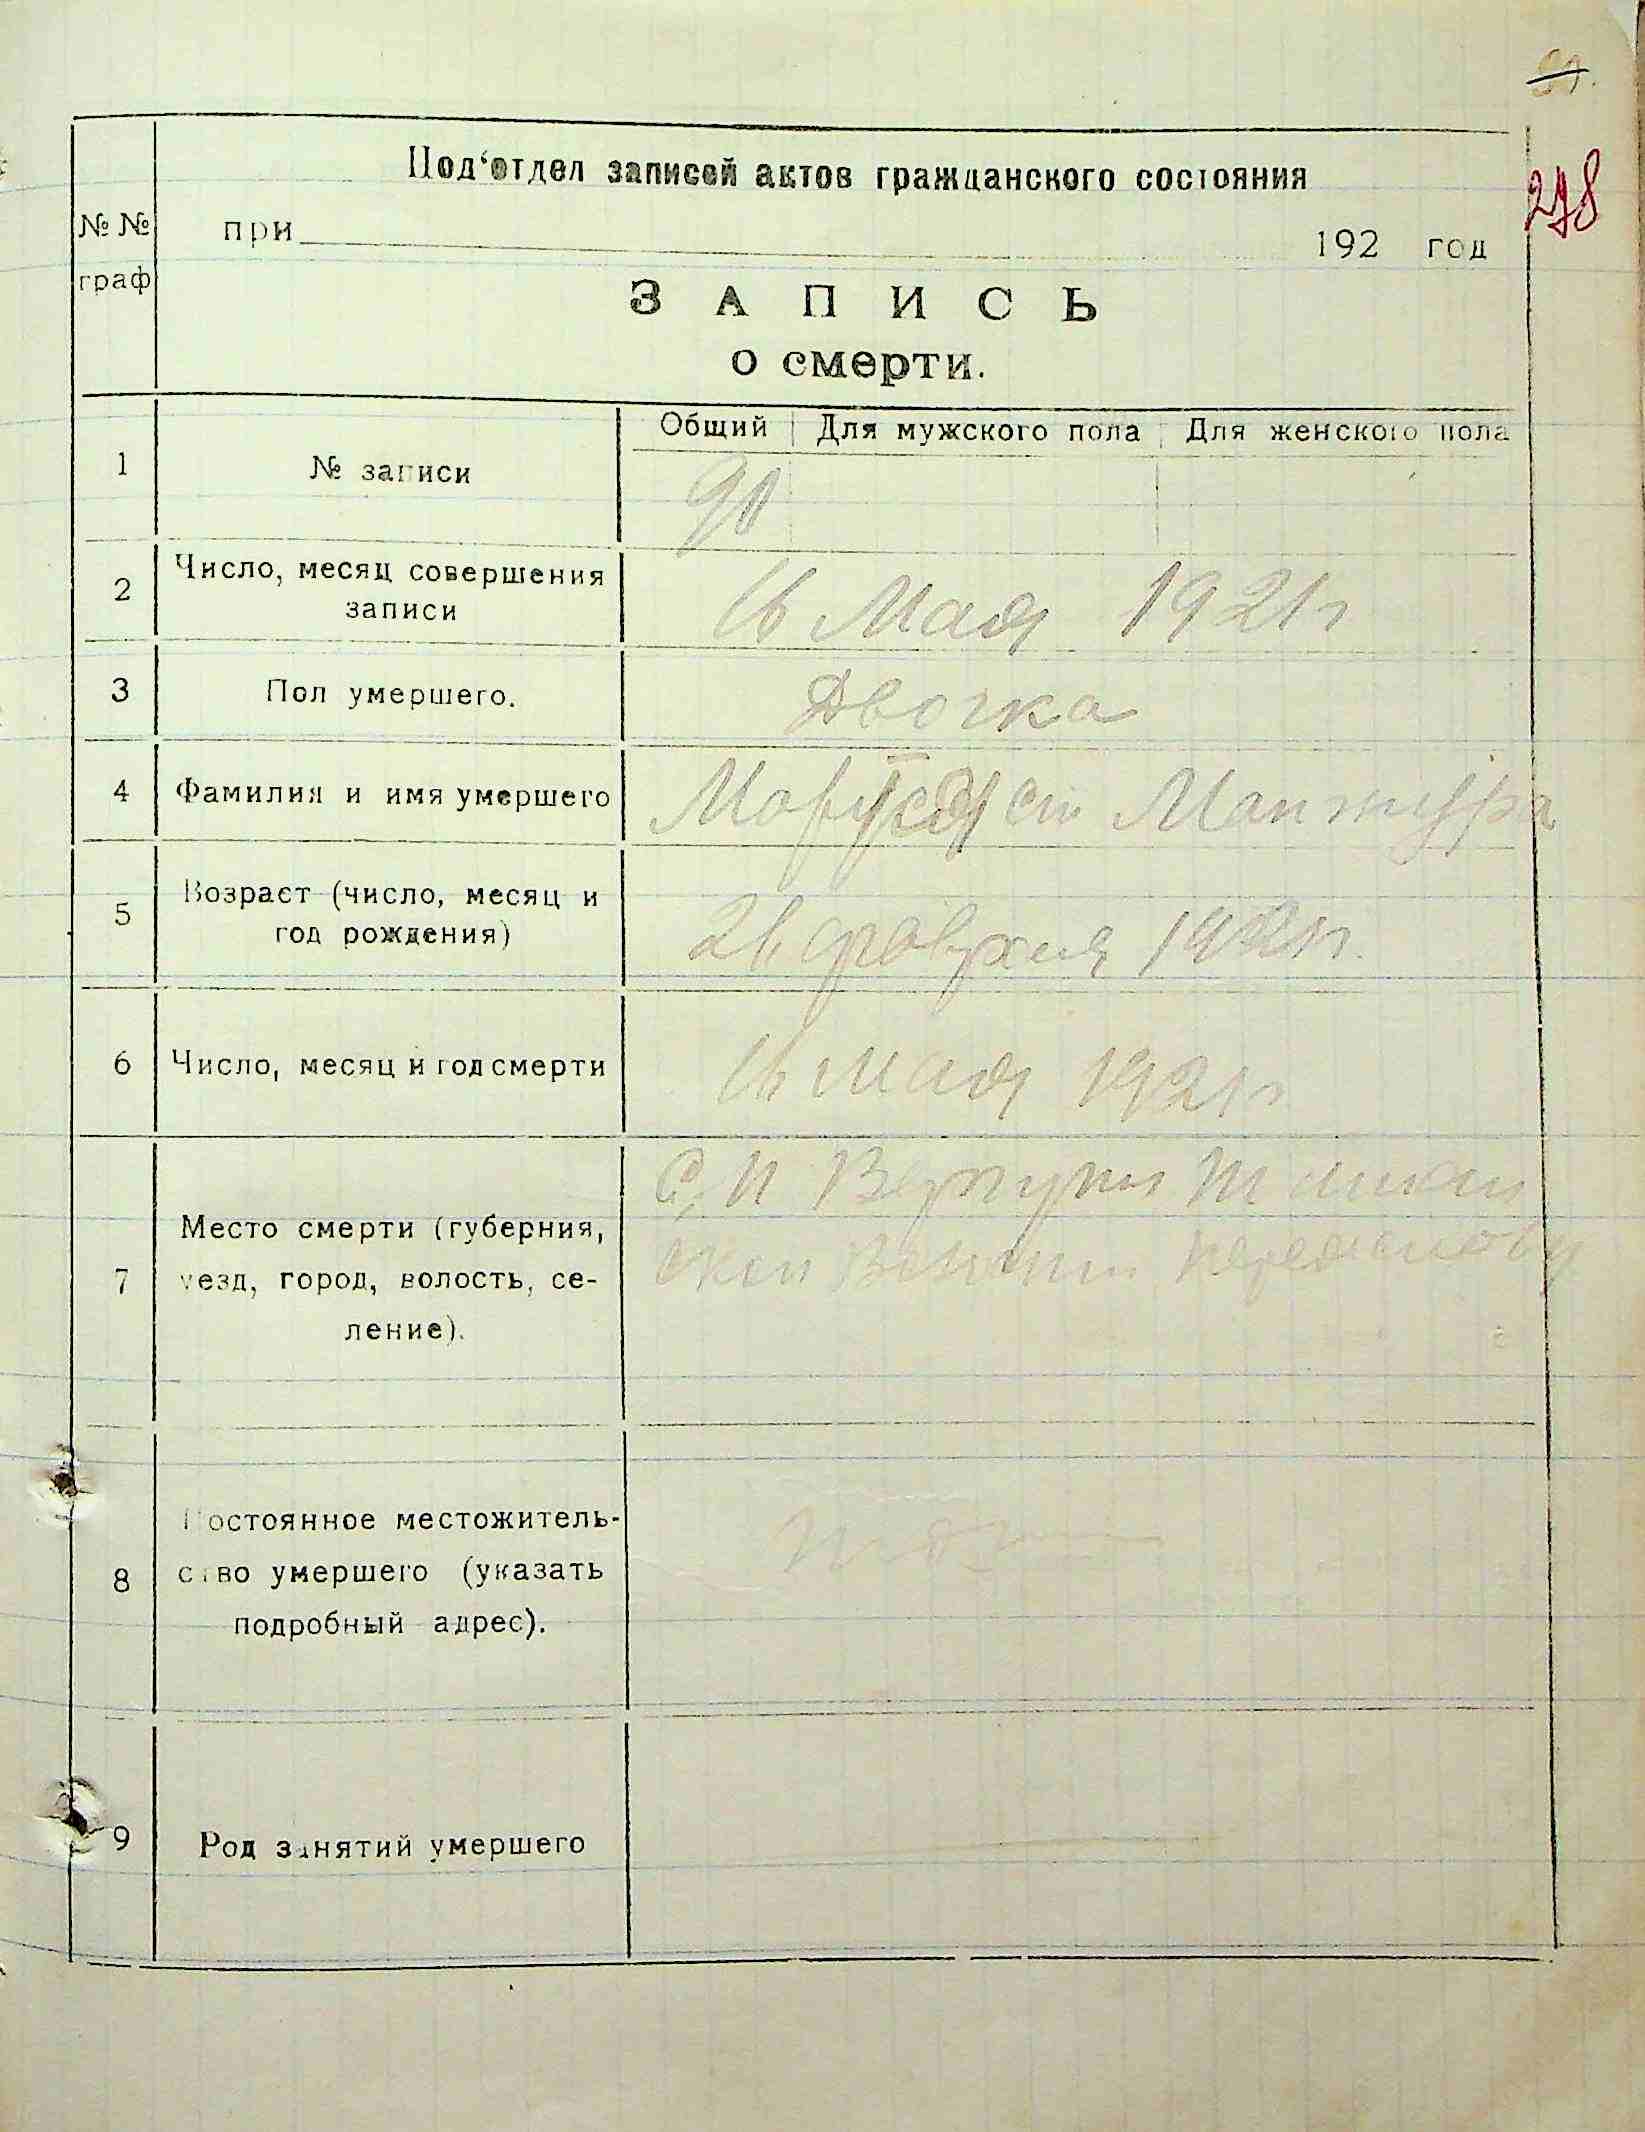 91.
278
№ №
граф
Под‘отдел записей актов гражданского состояния
при 192 год
ЗАПИСЬ
о смерти.
Общий Для мужского пола Для женского пола
1 № записи 90
2 Число, месяц совершения
записи
16 Мая 1921 г
3 Пол умершего. Двочка
4 Фамилия и имя умершего Маруся Манжура
5 Возраст (число, месяц и
год рождения)
26 февраля 1921 г.
6 Число, месяц и год смерти 16 Мая 1921 г
7 Место смерти (губерния,
уезд, город, волость, се-
ление).
С,
8 Постоянное местожитель-
ство умершего (указать
подробный адрес).
9 Род занятий умершего